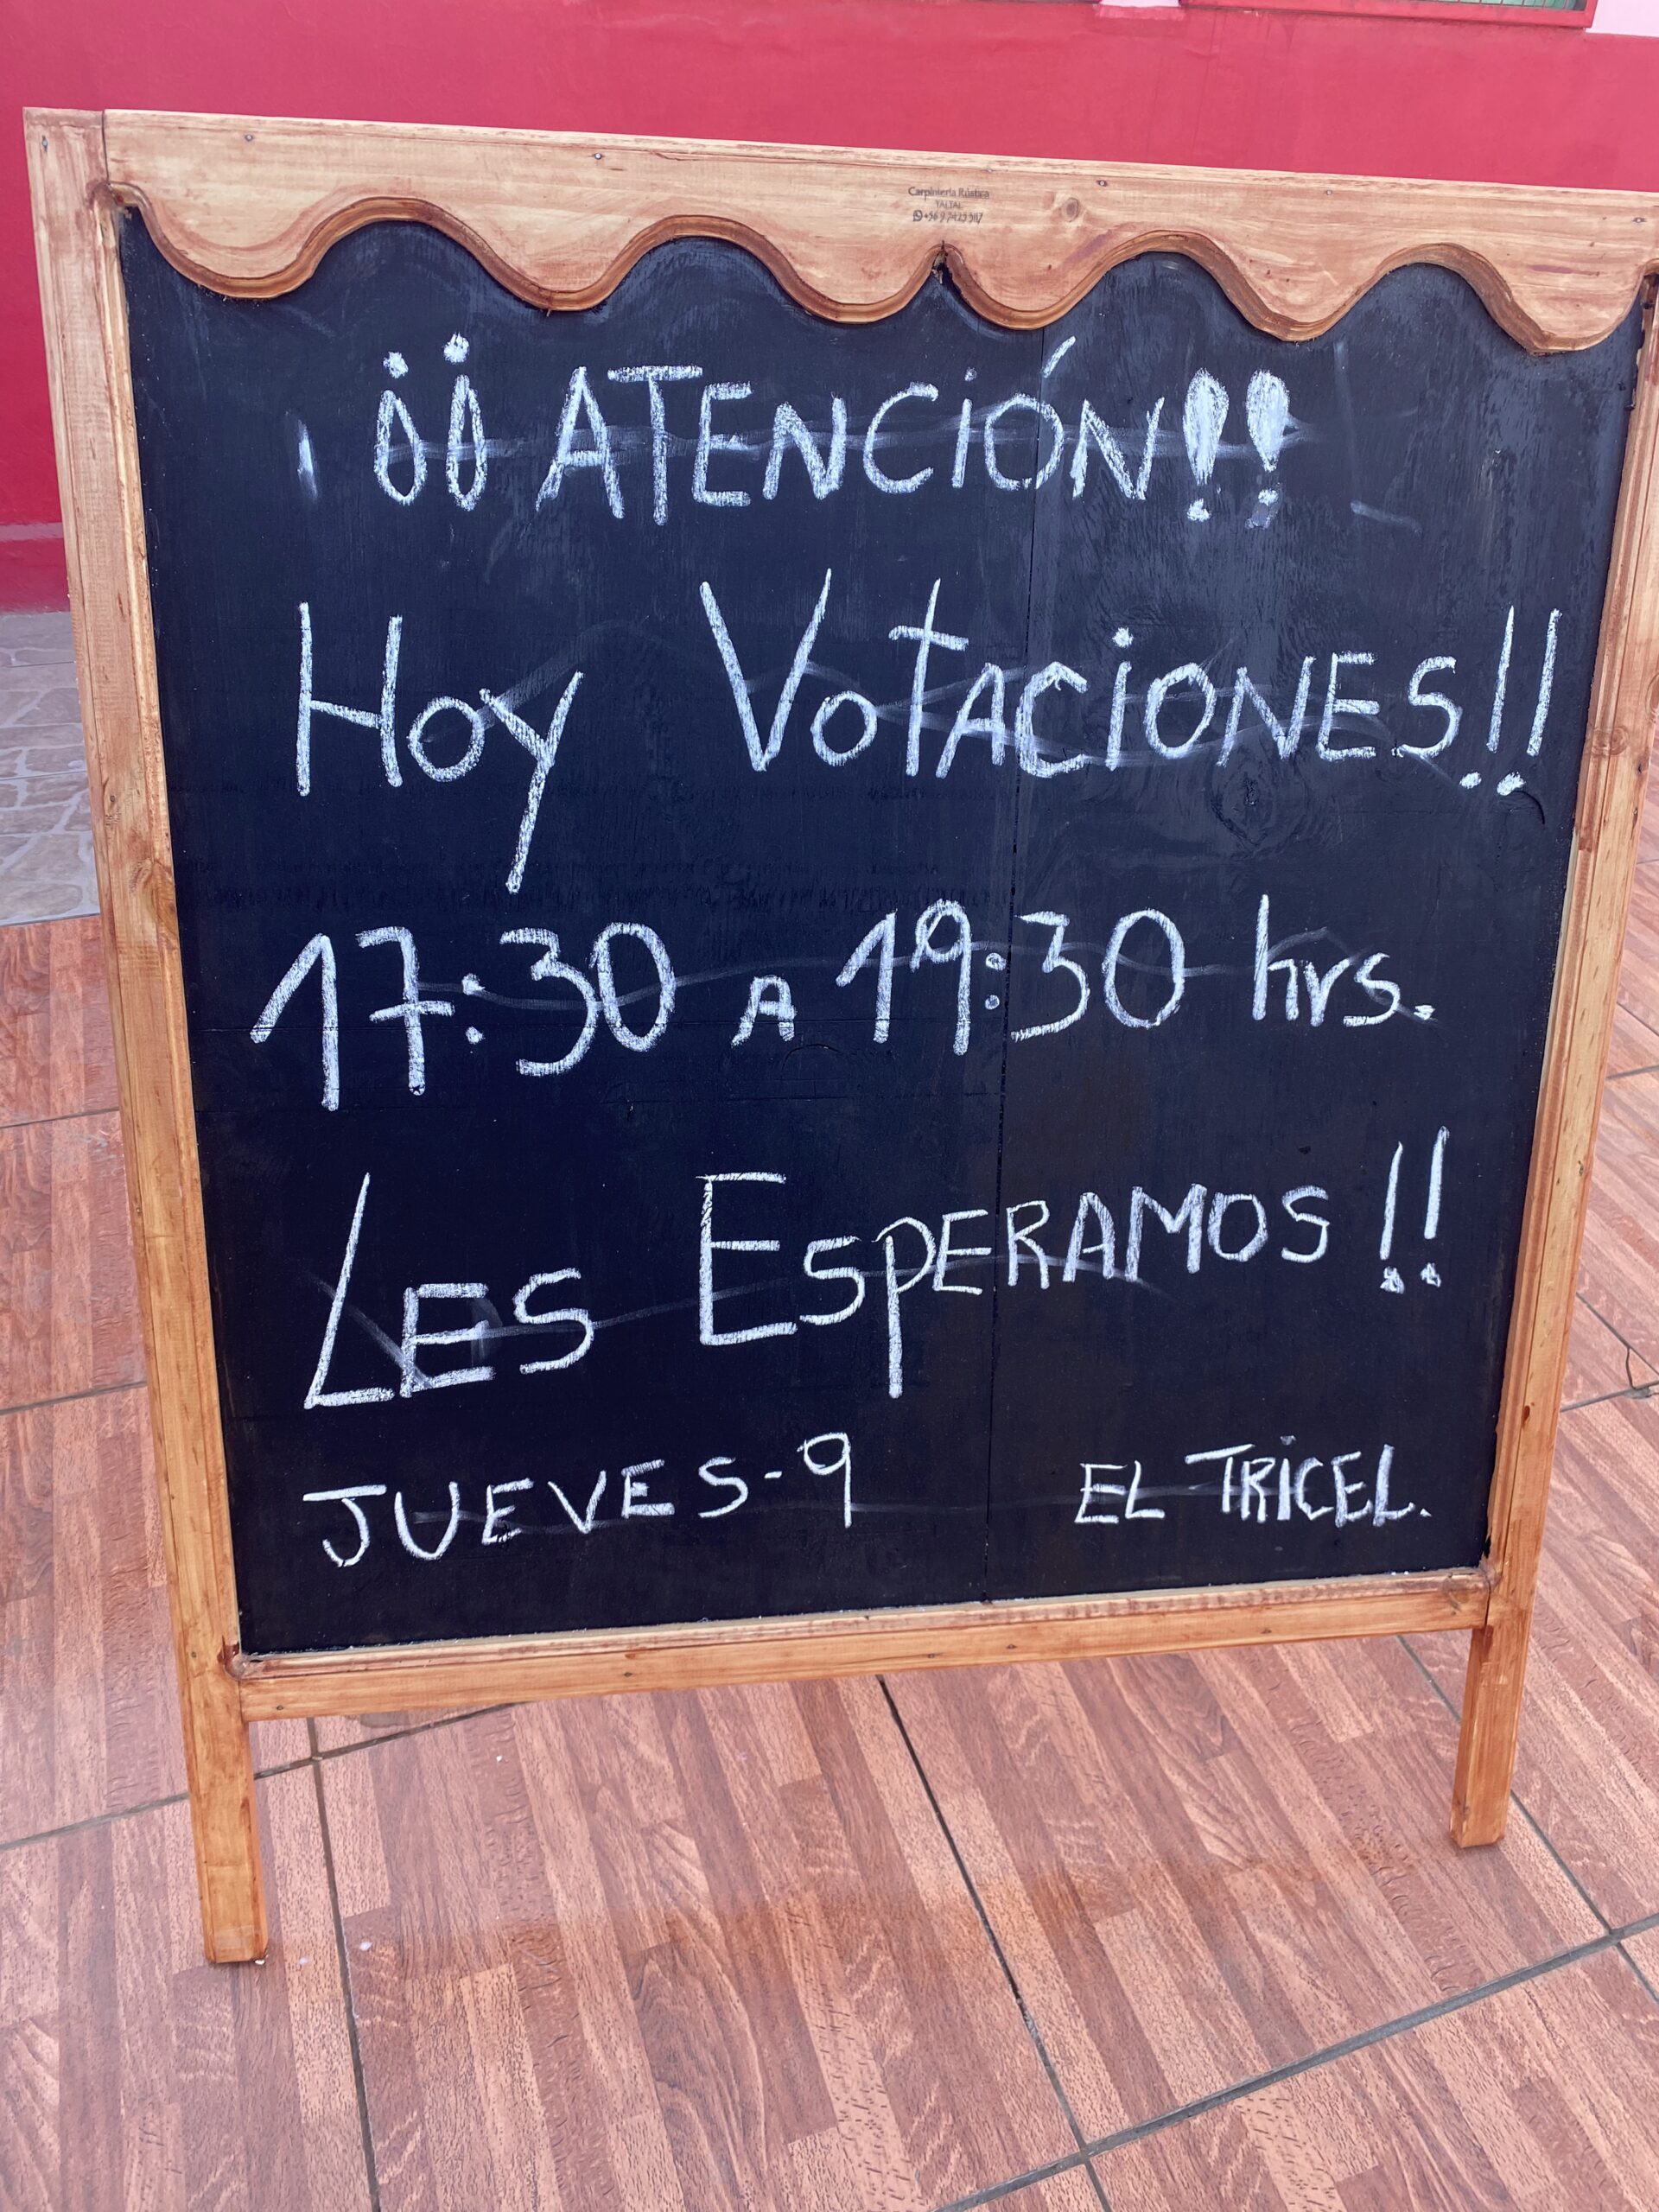 Carpintería Rústica
TALTAL
¡¡ATENCIÓN!!
Hoy VotACiONES!!
17:30 A 19:30 hrs.
LES ESPERAMOS!!
JUEVES-9 EL TRiCEL.